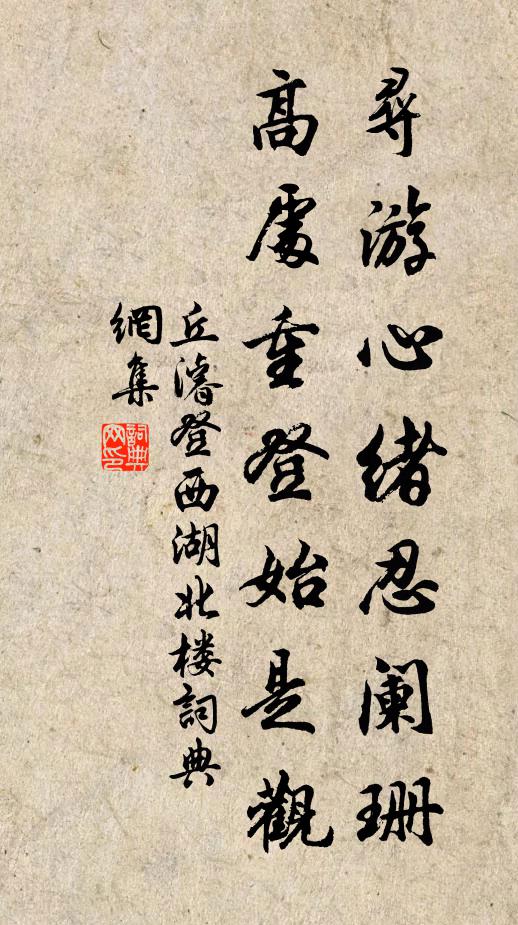 尋游心緒忍阑珊
高處重登始是觀
丘濬登西湖北楼詞典
網集
詞典
网印